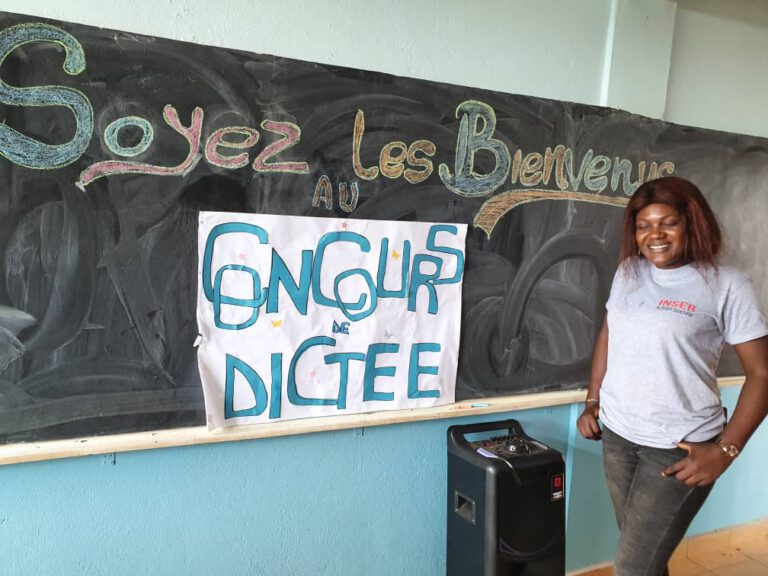 Soyez Les Bienvenus
AU
CONCOURS
DE
DICTEE
INSER
Action Sociale